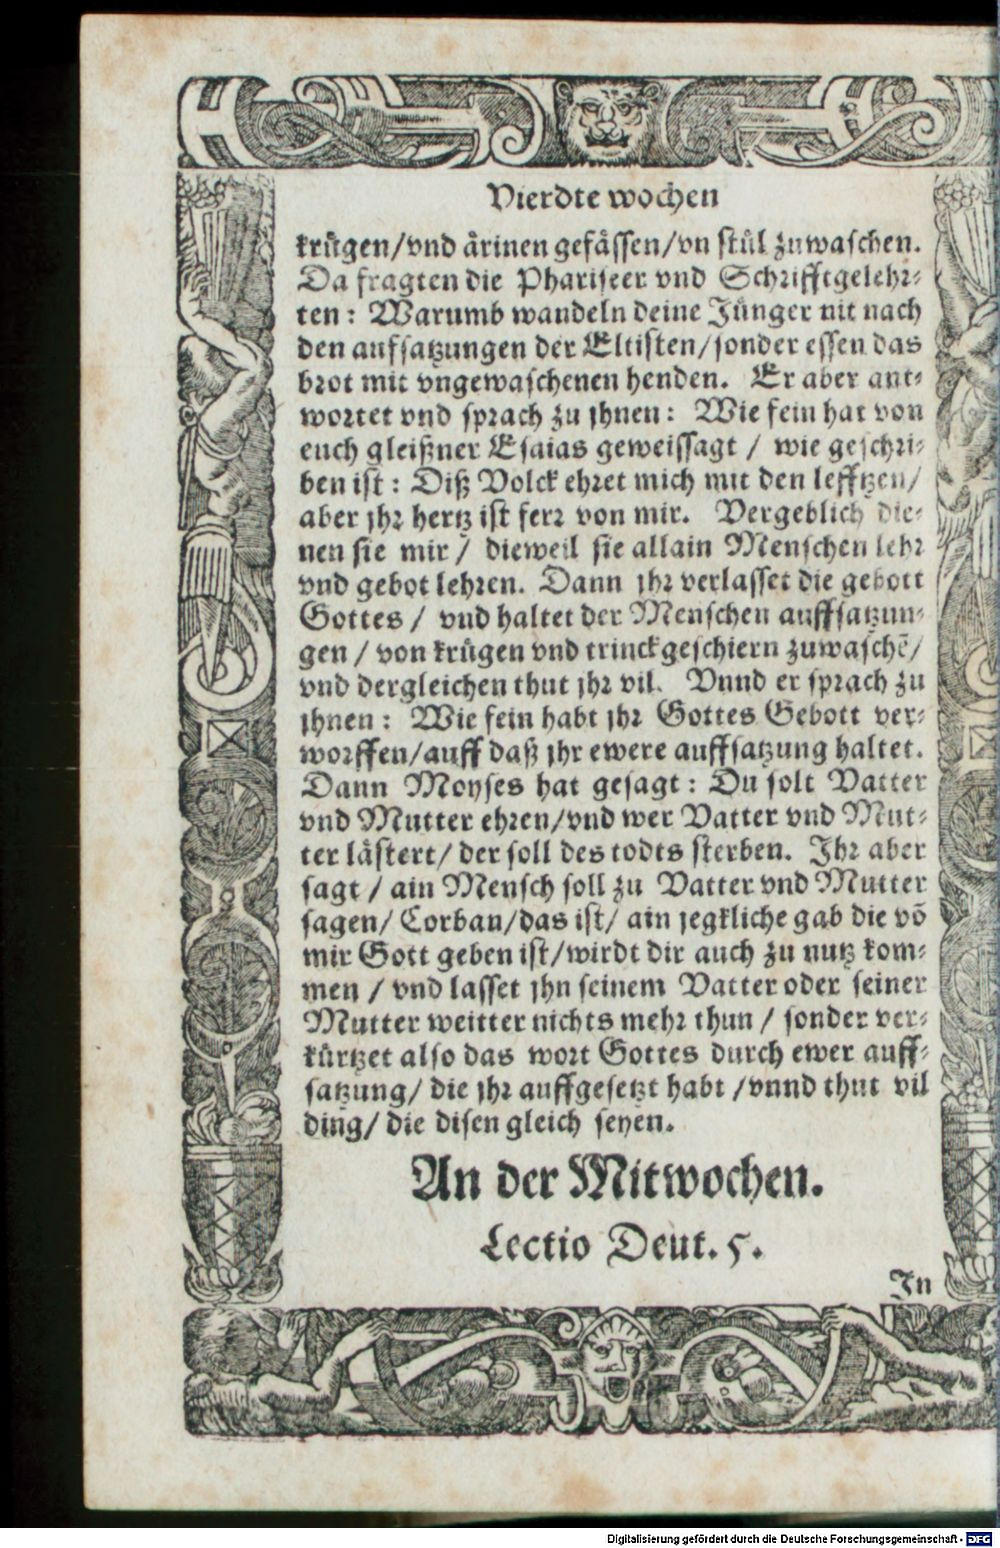 Vierdte wochen
krügen/vnd ärinen gefässen/vn stül zuwaschen.
Da fragten die Phariseer vnd Schrifftgelehr-
ten: Warumb wandeln deine Jünger nit nach
den aufsatzungen der Eltisten/sonder essen das
brot mit vngewaschenen henden. Er aber ant-
wortet vnd sprach zu jhnen: Wie fein hat von
euch gleißner Esaias geweissagt / wie geschri-
ben ist: Diß Volck ehret mich mit den lefftzen/
aber jhr hertz ist ferr von mir. Vergeblich die-
nen sie mir / dieweil sie allain Menschen lehr
vnd gebot lehren. Dann jhr verlasset die gebott
Gottes / vnd haltet der Menschen auffsatzun-
gen / von krügen vnd trinckgeschiern zuwaschē/
vnd dergleichen thut jhr vil. Vnnd er sprach zu
jhnen: Wie fein habt jhr Gottes Gebott ver-
worffen/auff daß jhr ewere auffsatzung haltet.
Dann Moyses hat gesagt: Du solt Vatter
vnd Mutter ehren/vnd wer Vatter vnd Mut-
ter lästert/ der soll des todts sterben. Jhr aber
sagt / ain Mensch soll zu Vatter vnd Mutter
sagen/ Corban/das ist/ ain jegkliche gab die vō
mir Gott geben ist/wirdt dir auch zu nutz kom-
men / vnd lasset jhn seinem Vatter oder seiner
Mutter weitter nichts mehr thun / sonder ver-
kürtzet also das wort Gottes durch ewer auff-
satzung/ die jhr auffgesetzt habt /vnnd thut vil
ding/ die disen gleich seyen.
An der Mitwochen.
Lectio Deut. 5.
In
Digitalisierung gefördert durch die Deutsche Forschungsgemeinschaft - DFG